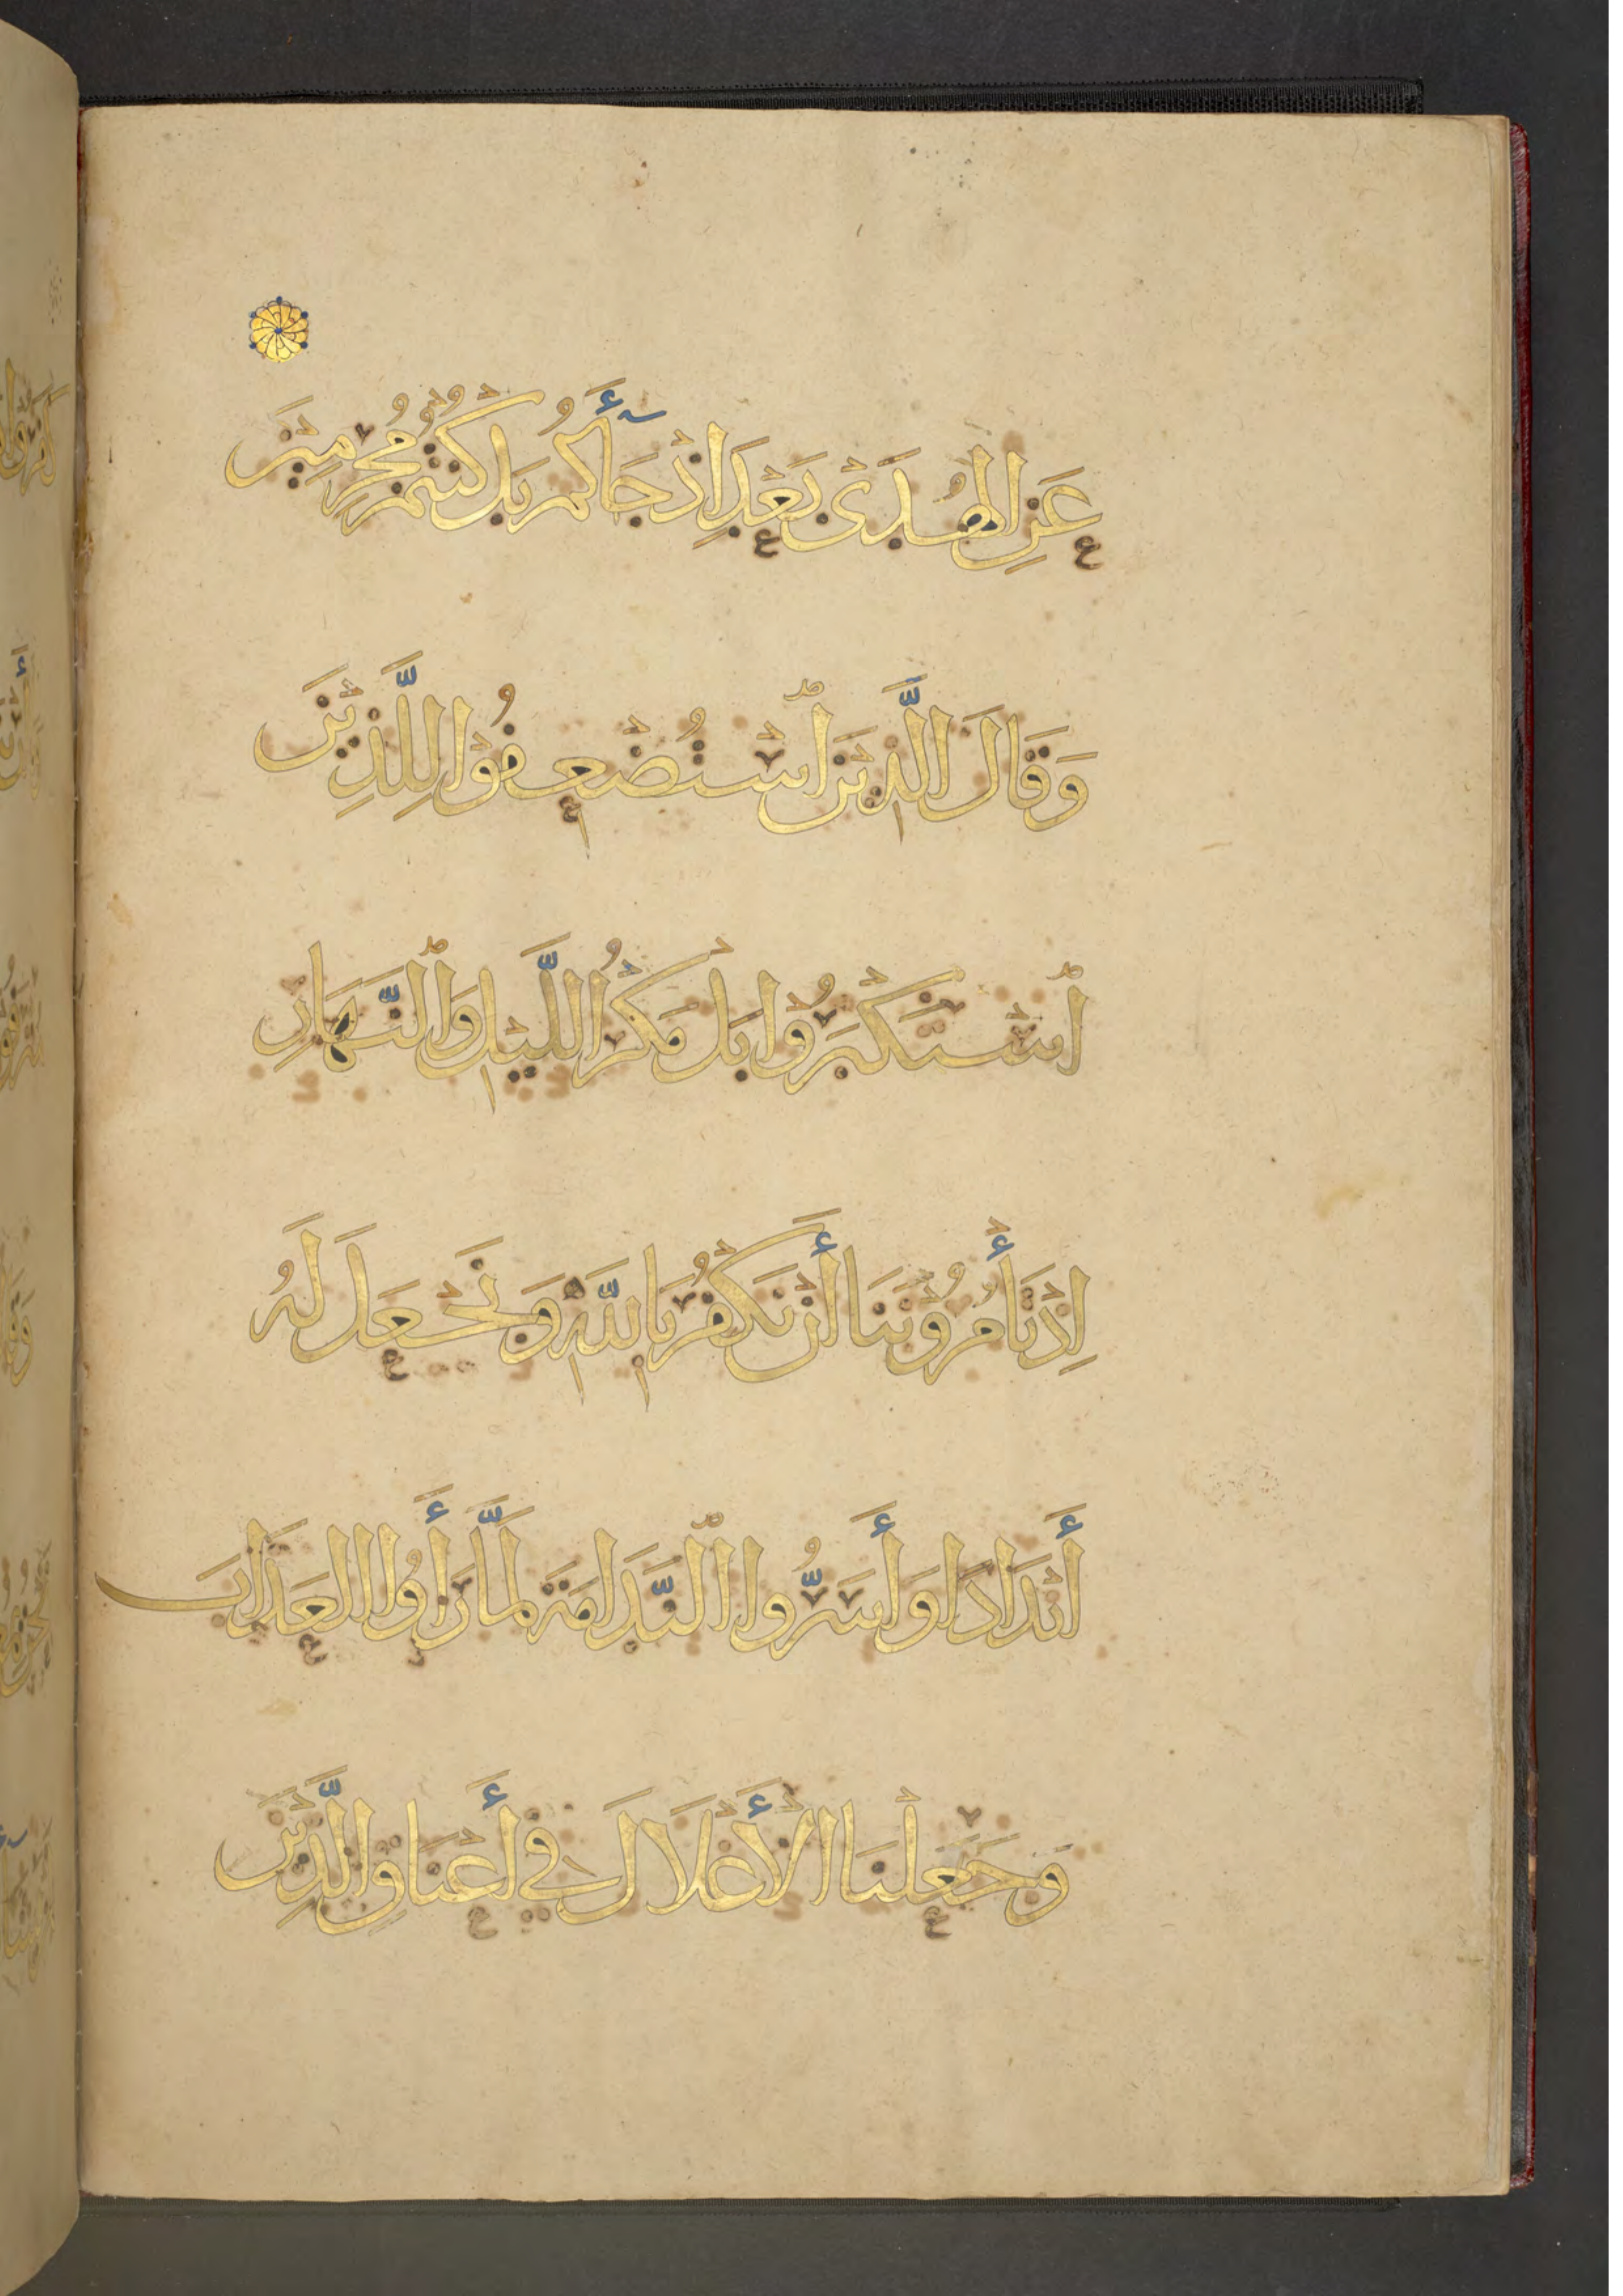 عَنِ الْهُدَىٰ بَعْدَ اِذْ جَآءَكُمْ بَلْ كُنْتُمْ مُجْرِمِينَ
وَقَالَ الَّذِينَ اسْتُضْعِفُوْا لِلَّذِيْنَ
اسْتَكْبَرُوْا بَلْ مَكْرُ اللَّيْلِ وَالنَّهَارِ
اِذْ تَأْمُرُوْنَنَا أَنْ نَكْفُرَ بِاللَّهِ وَنَجْعَلَ لَهُ
أَنْدَادًا وَأَسَرُّوا النَّدَامَةَ لَمَّا رَأَوُا الْعَذَابَ
وَجَعَلْنَا الْأَغْلَالَ فِي أَعْنَاقِ الَّذِيْنَ